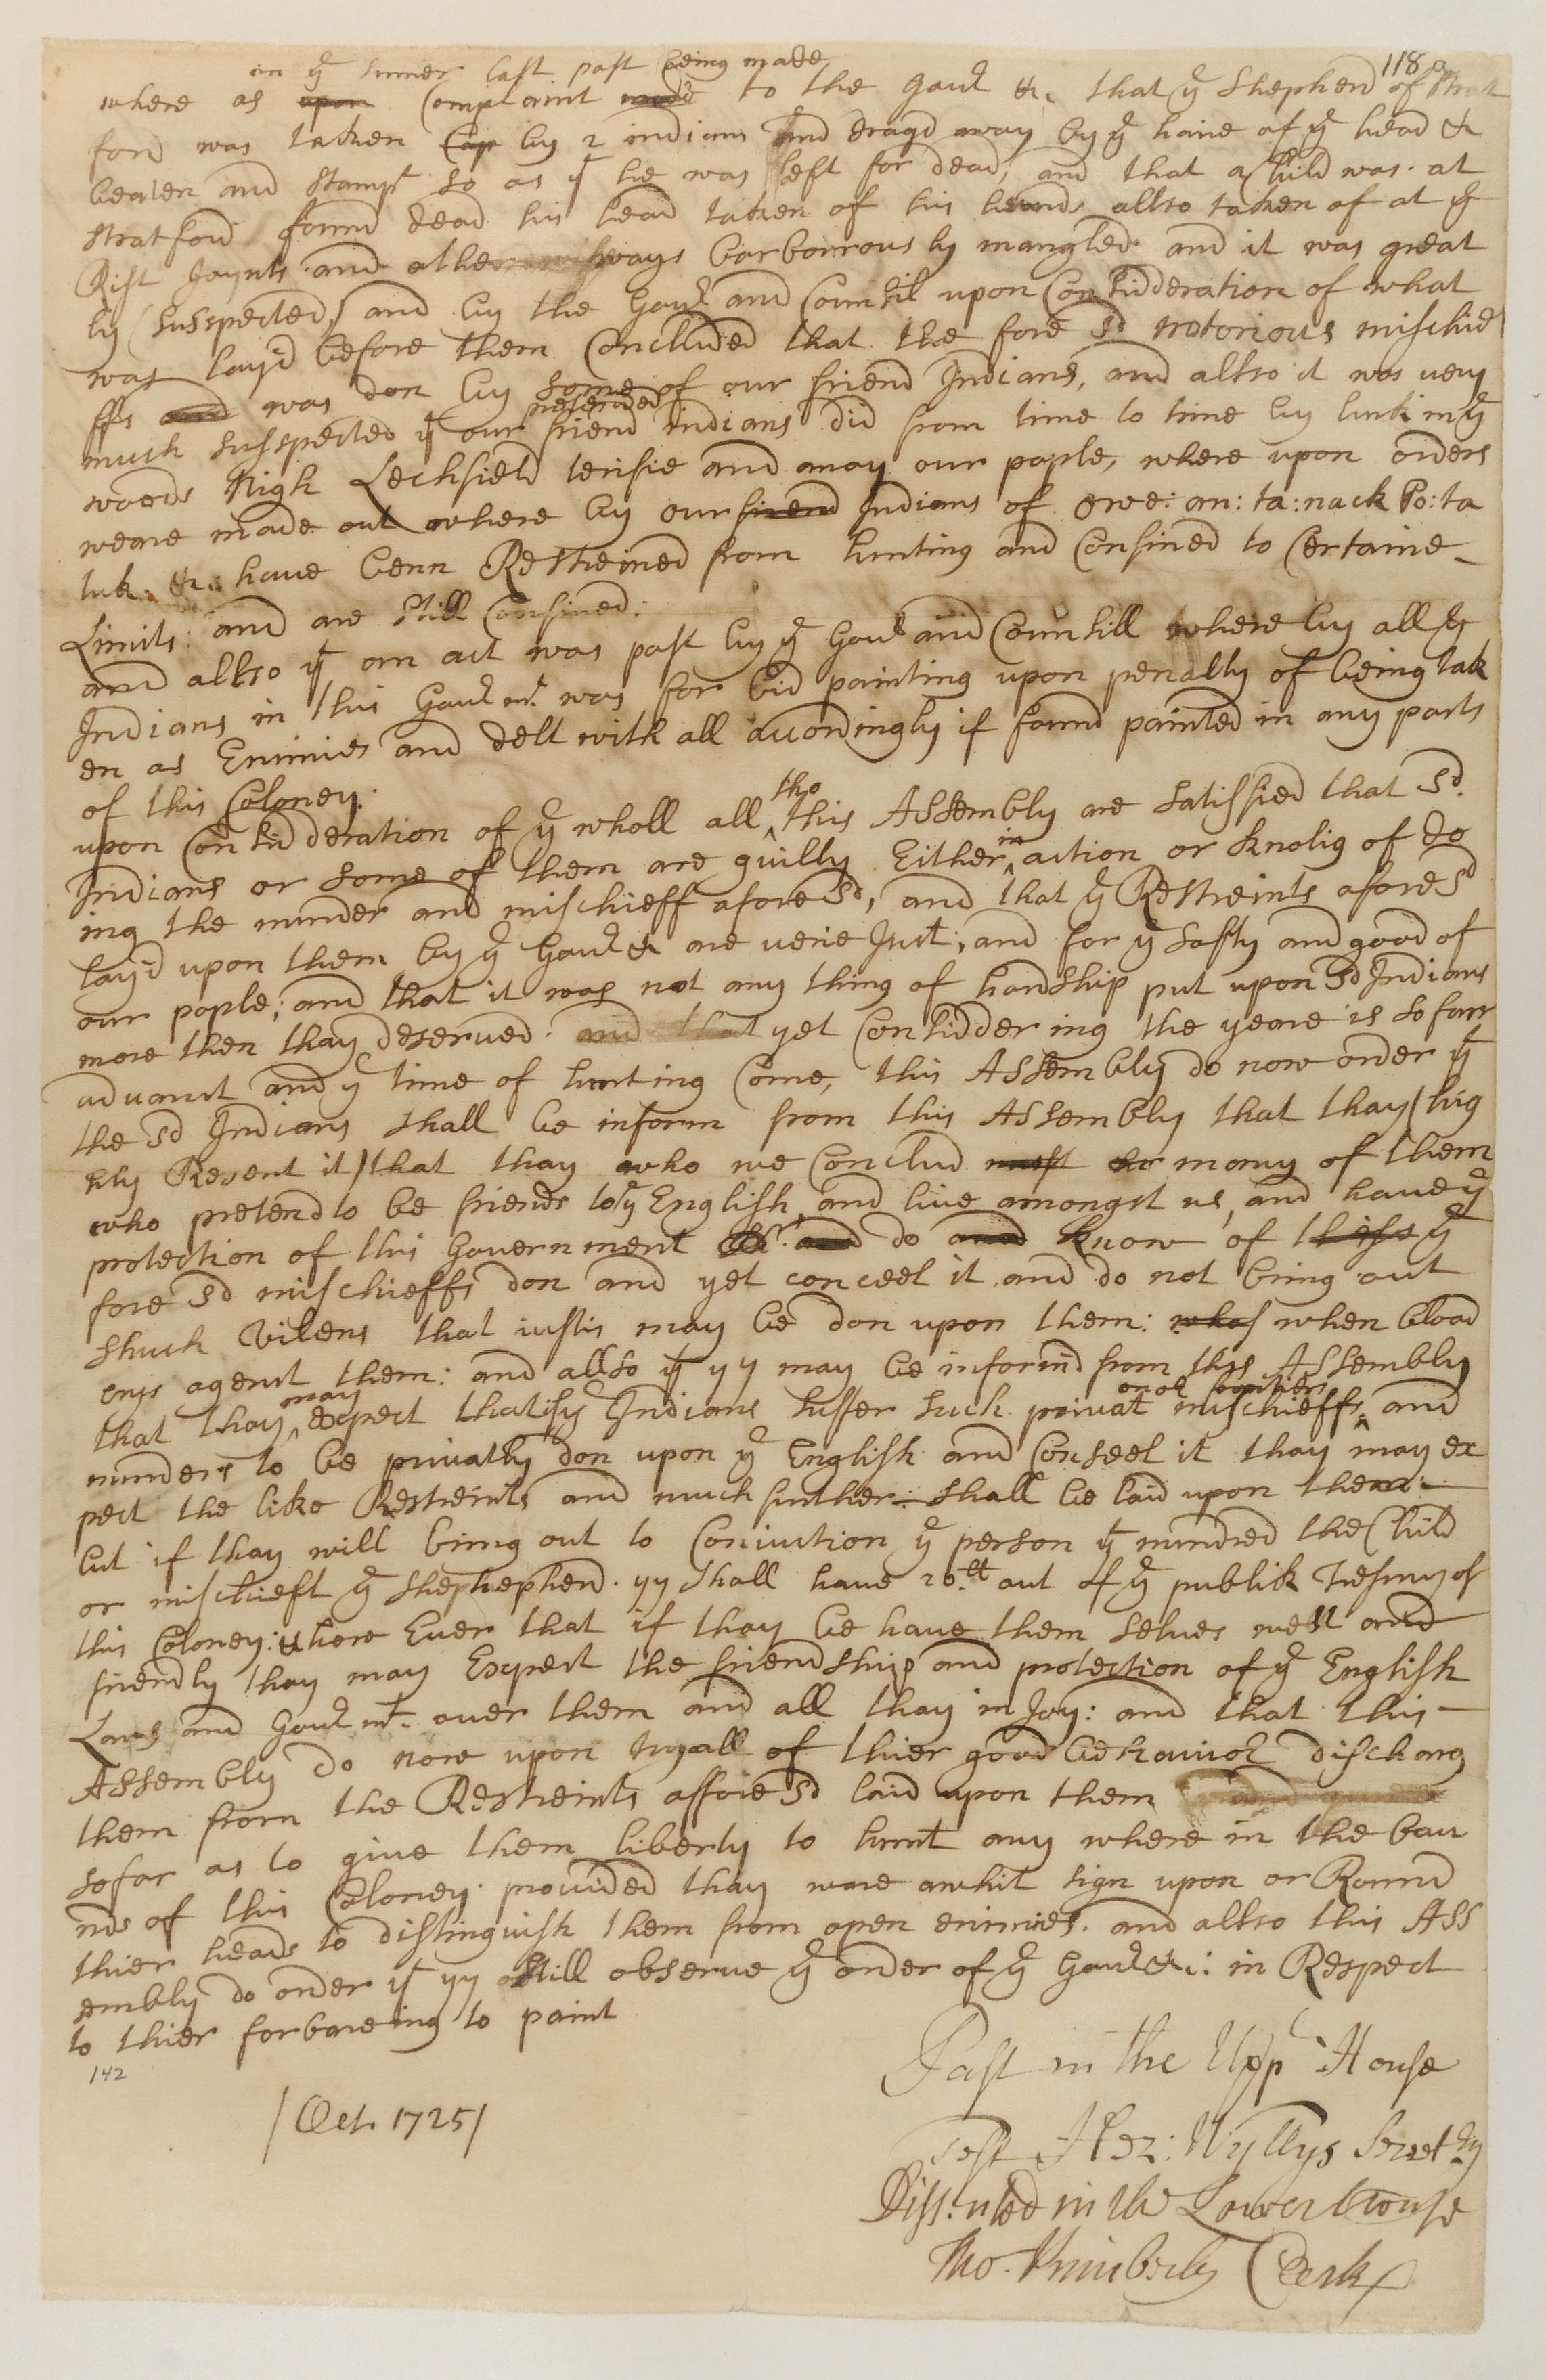 118a
in ye sumer last past being made
where as upon Complaint made to the Gour &c that ye Shepherd of Strat
ford was taken Cap by 2 indians and dragd away by ye haire of ye head &
beaten and stampt so as yt he was left for dead, and that a Child was at
stratford found dead his head taken of his hands allso taken of at ye
Rist Joynts and other ways barborrously mangled and it was great
ly susspected, and by the Gour and Counsil upon Considderation of what
was layd before them Conclluded that the fore sd notorious mischid
ffs and was don by some of our friend Indians, and allso it was very
much susspected yt our pretended friend indians did from time to time by lurk in ye
woods Nigh Lechfield terifie and anoy our people, where upon orders
weare made out where by our friend Indians of owe: an: ta: nack Po: ta
tuk: &c: have benn Restreined from hunting and Confined to Certaine
Limits and are still Confined:
and allso yt an act was past by ye Gour and Counsill where by all ye
Indians in this Gourmt was for bid painting upon penallty of being tak
en as Enimies and delt with all acordingly if found painted in any parts
of this Coloney.
upon Considderation of ye wholl all tho this Assembly are satisfied that sd
Indians or some of them are guilty Either in action or knolig of do
ing the murder and mischieff afore sd, and that ye Restreints afore sd
layd upon them by ye Gour & are verie Just, and for ye safty and good of
our pople; and that it was not any thing of hardship put upon sd Indians
more then thay deserved. and that yet Considdering the yeare is so farr
advanct and ye time of hunting Come, this Assembly do now order yt
the sd Indians shall be inform from this Assembly that thay hig
hly Resent it that thay who we Conclud must or many of them
who pretend to be friends to ye English and live amongst us, and have ye
protection of this Government and do and know of these ye
fore sd mischieffs don and yet conceel it and do not bring out
shuch Vilens that iustis may be don upon them: whos when blood
crys agenst them: and allso yt yy may be informd from this Assembly
that thay may expect that if ye Indians suffer such privat mischieffs and
murders to be privatly don upon ye English and Conseel it thay may ex
pect the like Restreints and much further shall be laid upon them
but if thay will bring out to Conviction ye person yt murdred the Child
or mischieft ye shephepherd. yy shall have 20ll out of ye publick Tresury of
this Coloney: & how Ever that if thay be have them selves well and
friendly thay may Expect the friendship and protection of ye English
Laws and Gourmt over them and all thay in Joy: and that this
Assembly do now upon tryall of thier good behaivior discharg
them from the Restreints affore sd laid upon them
so far as to give them liberty to hunt any where in the bau
nds of this Coloney. provided thay ware a whit sign upon or Round
thier heads to distinguish them from open enimies. and allso this Ass
embly do order yt yy still observe ye order of ye Gour &c: in Respect
to thier forbareing to paint
142
/Oct. 1725/
Past in the Uppr House
Test Hez: Wyllys Secretry
Dissented in the Lower House
Tho. Kimberly Clerk